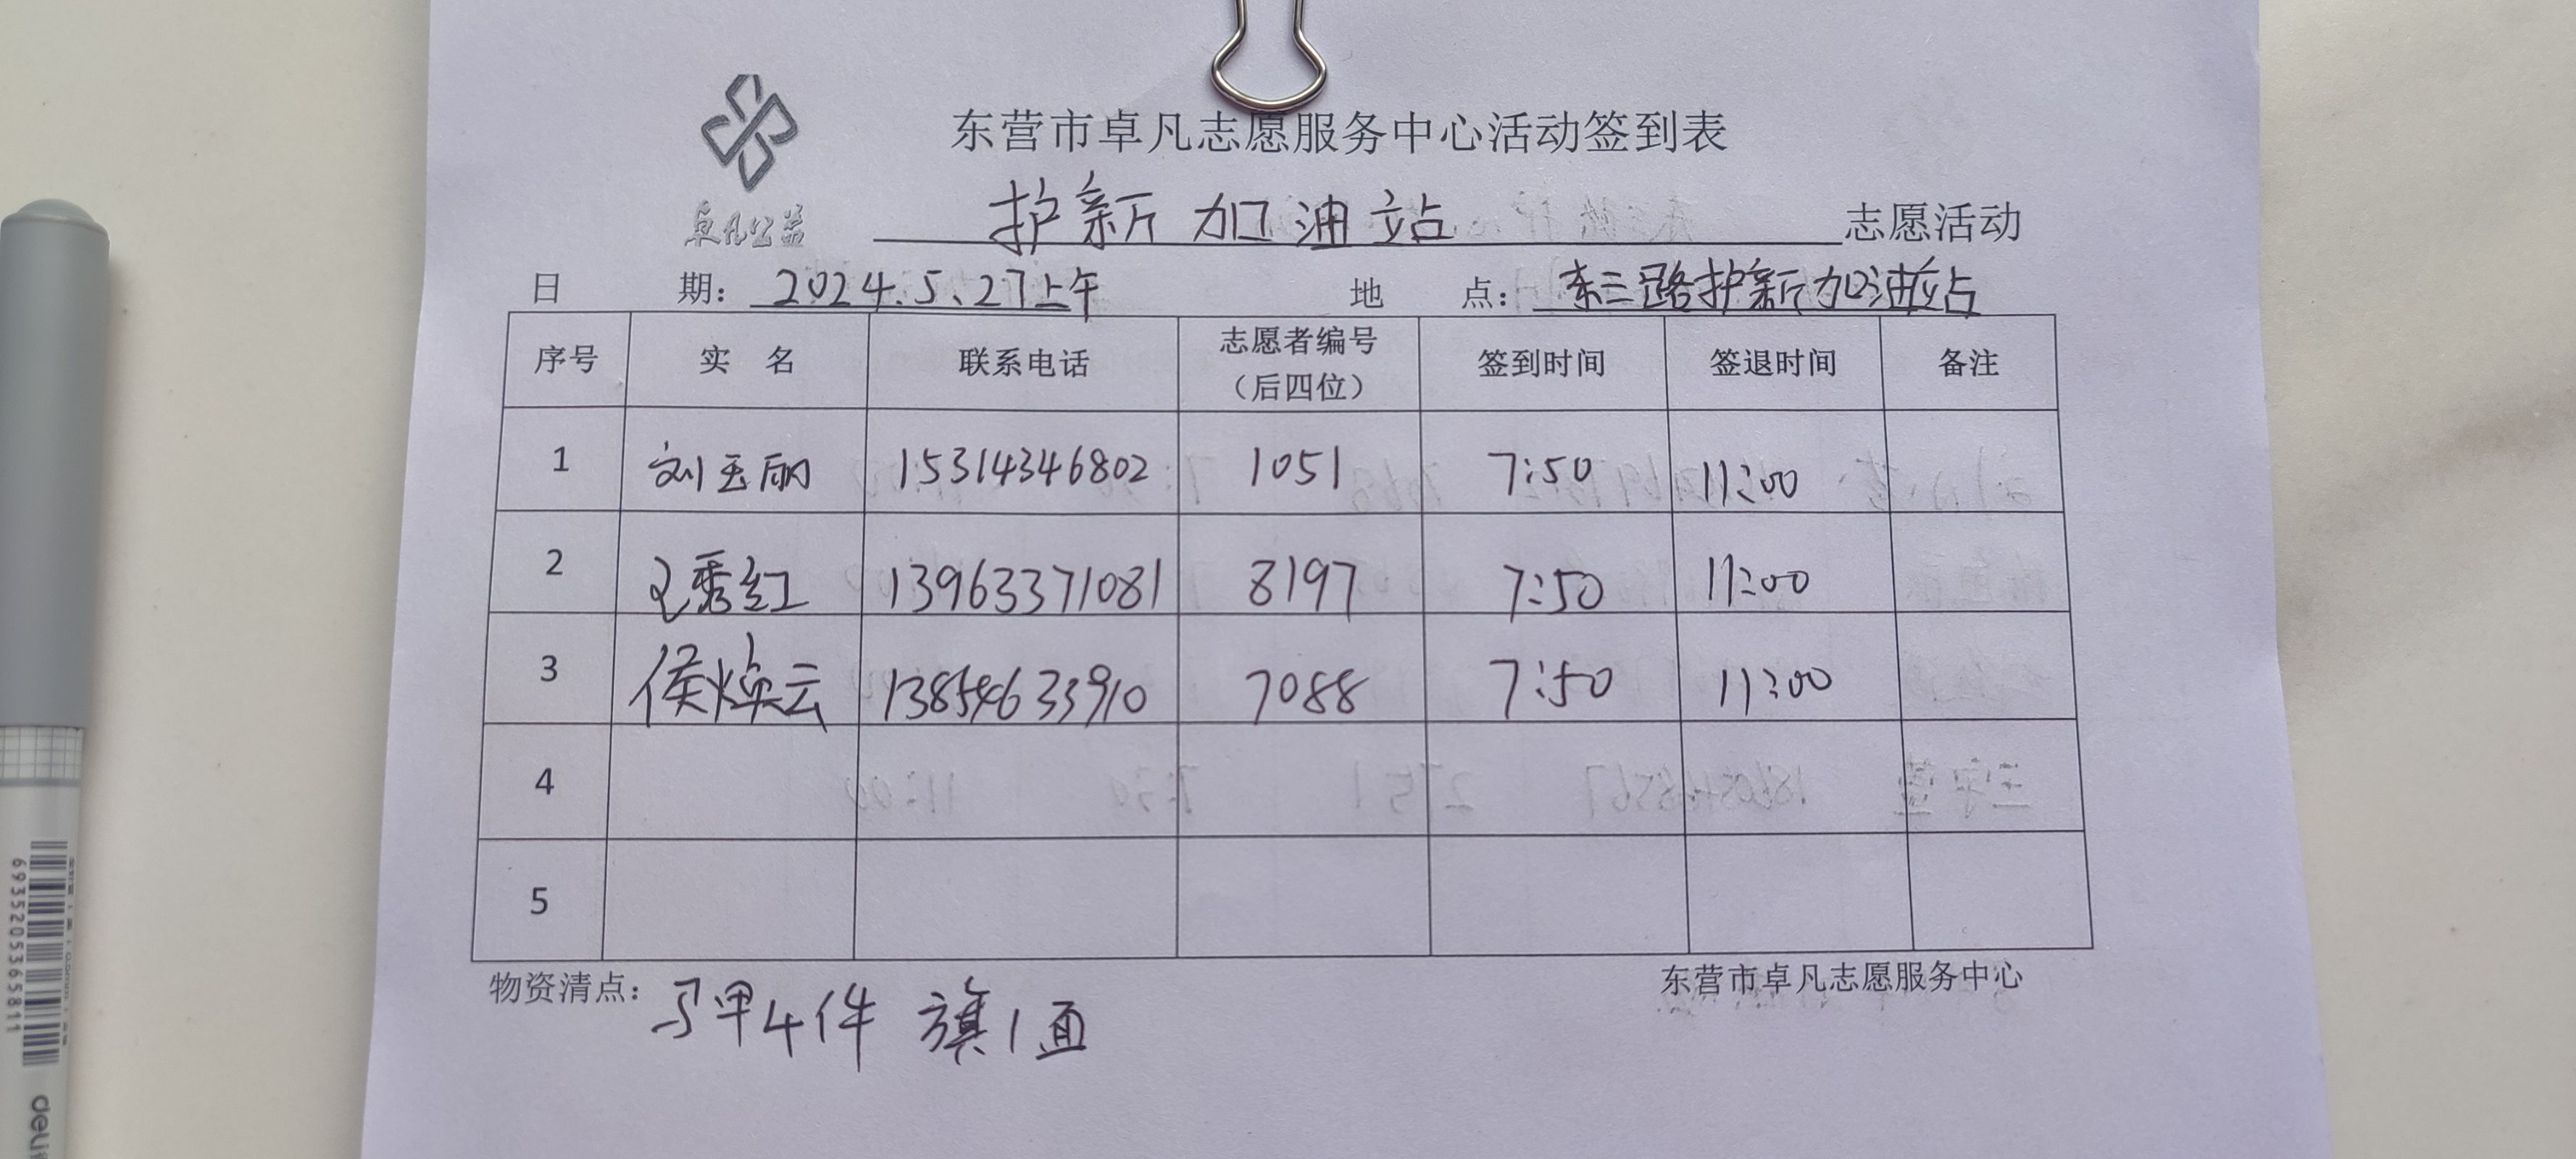 东营市卓凡志愿服务中心活动签到表
卓凡公益
护新加油站 志愿活动
日 期：2024.5.27上午 地 点：东三路护新加油站
序号 实 名 联系电话 志愿者编号（后四位） 签到时间 签退时间 备注
1 刘玉丽 15314346802 1051 7:50 11:00
2 秀红 13963371081 8197 7:50 11:00
3 侯焕云 13854633910 7088 7:50 11:00
4
5
物资清点：马甲4件 旗1面
东营市卓凡志愿服务中心
6935205365811
deli